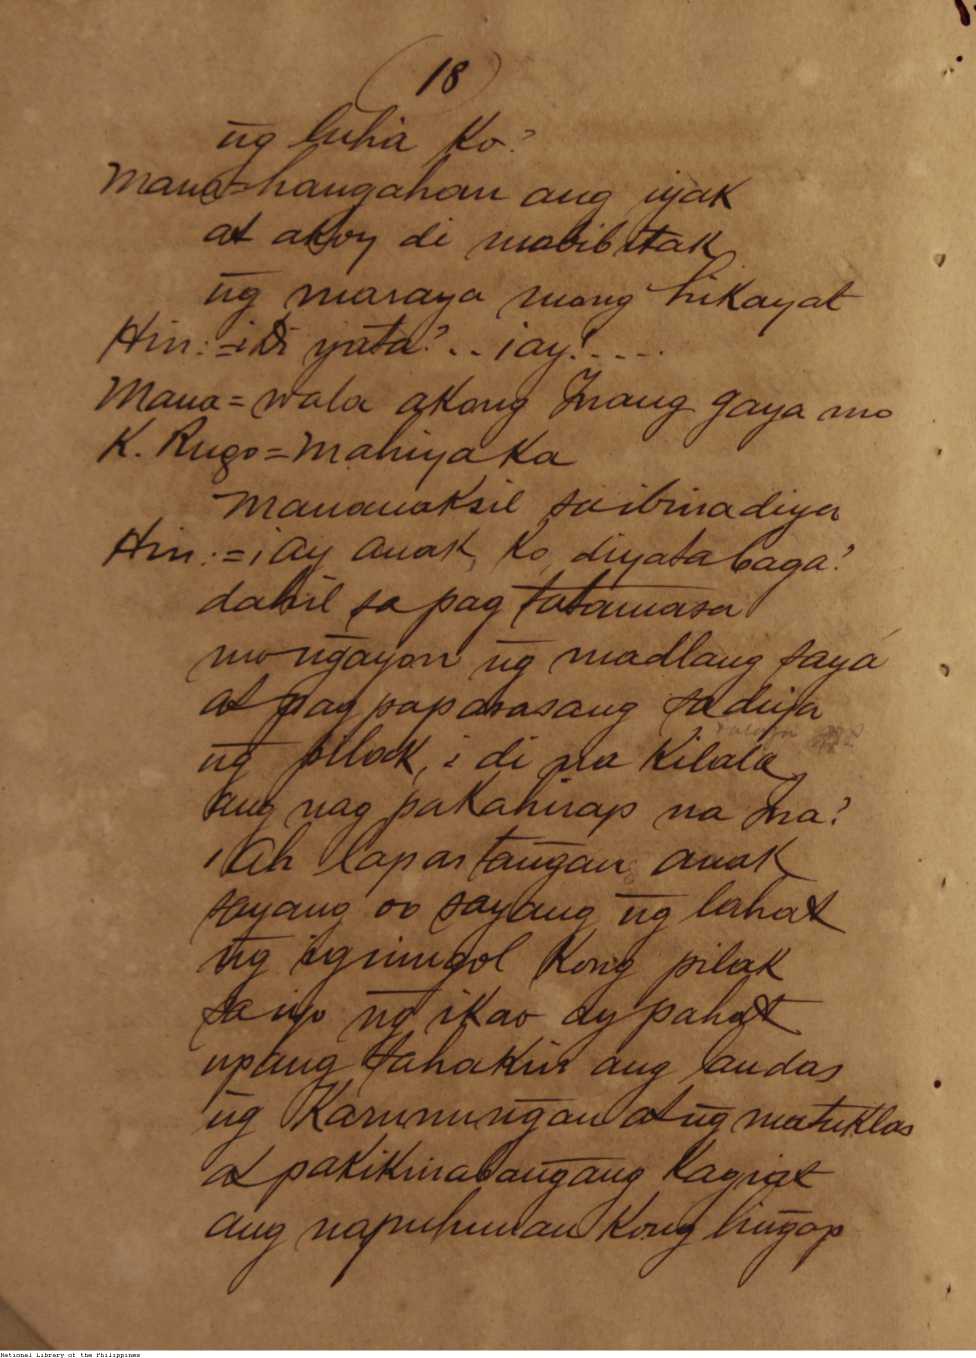 (18)
ng̃ luha ko?
Mana=hangahan ang iyak
at akoy di mabibitak
ng̃ maraya mong hikayat
Hin:=¿Di yata?.. ¡ay!.....
Mana=wala akong Inang gaya mo
K. Rugo=Mahiya ka
Mananaksil sa ibinadiya
Hin:=¡ay anak, ko, diyata baga?
dahil sa pag tatamasa
mo ng̃ayon ng̃ madlang saya
at pag papasasang sadiya
ng̃ pilak, i di na kilala
ang nag pakahirap na Ina?
¡Ah lapastang̃an anak
sayang oo sayang ng̃ lahat
ng̃ iginugol kong pilak
sa iyo ng̃ ikao ay pahat
upang tahakin ang landas
ng̃ Karunung̃an at ng̃ matuklas
at pakikinabang̃ang kagiat
ang napuhunan kong ling̃ap
National Library of the Philippines